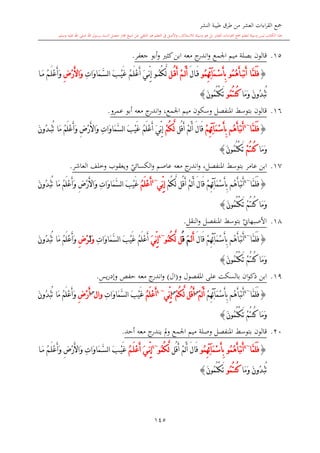 جمع القراءات العشر من طرق طيبة النشر
١٥. قالون بصلة ميم الجمع واندرج معه ابن كثير وأبو جعفر.
﴿ فَلَمَّا أَنۢبَأَهُمُو بِأَسْمَآئِهِمُو قَالَ أَلَمْ أَقُل لَّكُمُو إِنِّيَ أَعْلَمُ غَيْبَ السَّمَٰوَاتِ وَالْأَرْضِ وَأَعْلَمُ مَا
تُبْدُونَ وَمَا كُنتُمُو تَكْتُمُونَ ﴾
١٦. قالون بتوسط المنفصل وسكون ميم الجمع، واندرج معه أبو عمرو.
﴿ فَلَمَّا أَنۢبَأَهُم بِأَسْمَآئِهِمْ قَالَ أَلَمْ أَقُل لَّكُمْ إِنِّيَ أَعْلَمُ غَيْبَ السَّمَٰوَاتِ وَالْأَرْضِ وَأَعْلَمُ مَا تُبْدُونَ
وَمَا كُنتُمْ تَكْتُمُونَ ﴾
١٧. ابن عامر بتوسط المنفصل، واندرج معه عاصم والكسائيّ ويعقوب وخلف العاشر.
﴿ فَلَمَّا أَنۢبَأَهُم بِأَسْمَآئِهِمْ قَالَ أَلَمْ أَقُل لَّكُمْ إِنِّي أَعْلَمُ غَيْبَ السَّمَٰوَاتِ وَالْأَرْضِ وَأَعْلَمُ مَا تُبْدُونَ
وَمَا كُنتُمْ تَكْتُمُونَ ﴾
١٨. الأصبهانيّ بتوسط المنفصل والنقل.
﴿ فَلَمَّا أَنۢبَأَهُم بِأَسْمَآئِهِمْ قَالَ أَلَمَ قُل لَّكُمُو إِنِّيَ أَعْلَمُ غَيْبَ السَّمَٰوَاتِ وَلَرْضِ وَأَعْلَمُ مَا
تُبْدُونَ وَمَا كُنتُمْ تَكْتُمُونَ ﴾
١٩. ابن ذكوان بالسكت على المفصول و(ال) واندرج معه حفص وإدريس.
﴿ فَلَمَّا أَنۢبَأَهُم بِأَسْمَآئِهِمْ قَالَ أَلَمْ أَقُل لَّكُمْ إِنِّي أَعْلَمُ غَيْبَ السَّمَٰوَاتِ وَالْأَرْضِ وَأَعْلَمُ مَا
تُبْدُونَ وَمَا كُنتُمْ تَكْتُمُونَ ﴾
٢٠. قالون بتوسط المنفصل وصلة ميم الجمع ولم يندرج معه أحد.
﴿ فَلَمَّا أَنۢبَأَهُمُو بِأَسْمَآئِهِمُو قَالَ أَلَمْ أَقُل لَّكُمُو إِنِّيَ أَعْلَمُ غَيْبَ السَّمَٰوَاتِ وَالْأَرْضِ وَأَعْلَمُ مَا
تُبْدُونَ وَمَا كُنتُمُو تَكْتُمُونَ ﴾
١٤٥